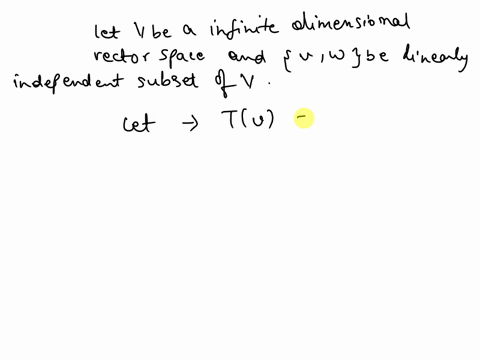 let V be a infinite dimensional
vector space and {u, w} be linearly
independent subset of V.
let → T(u) =